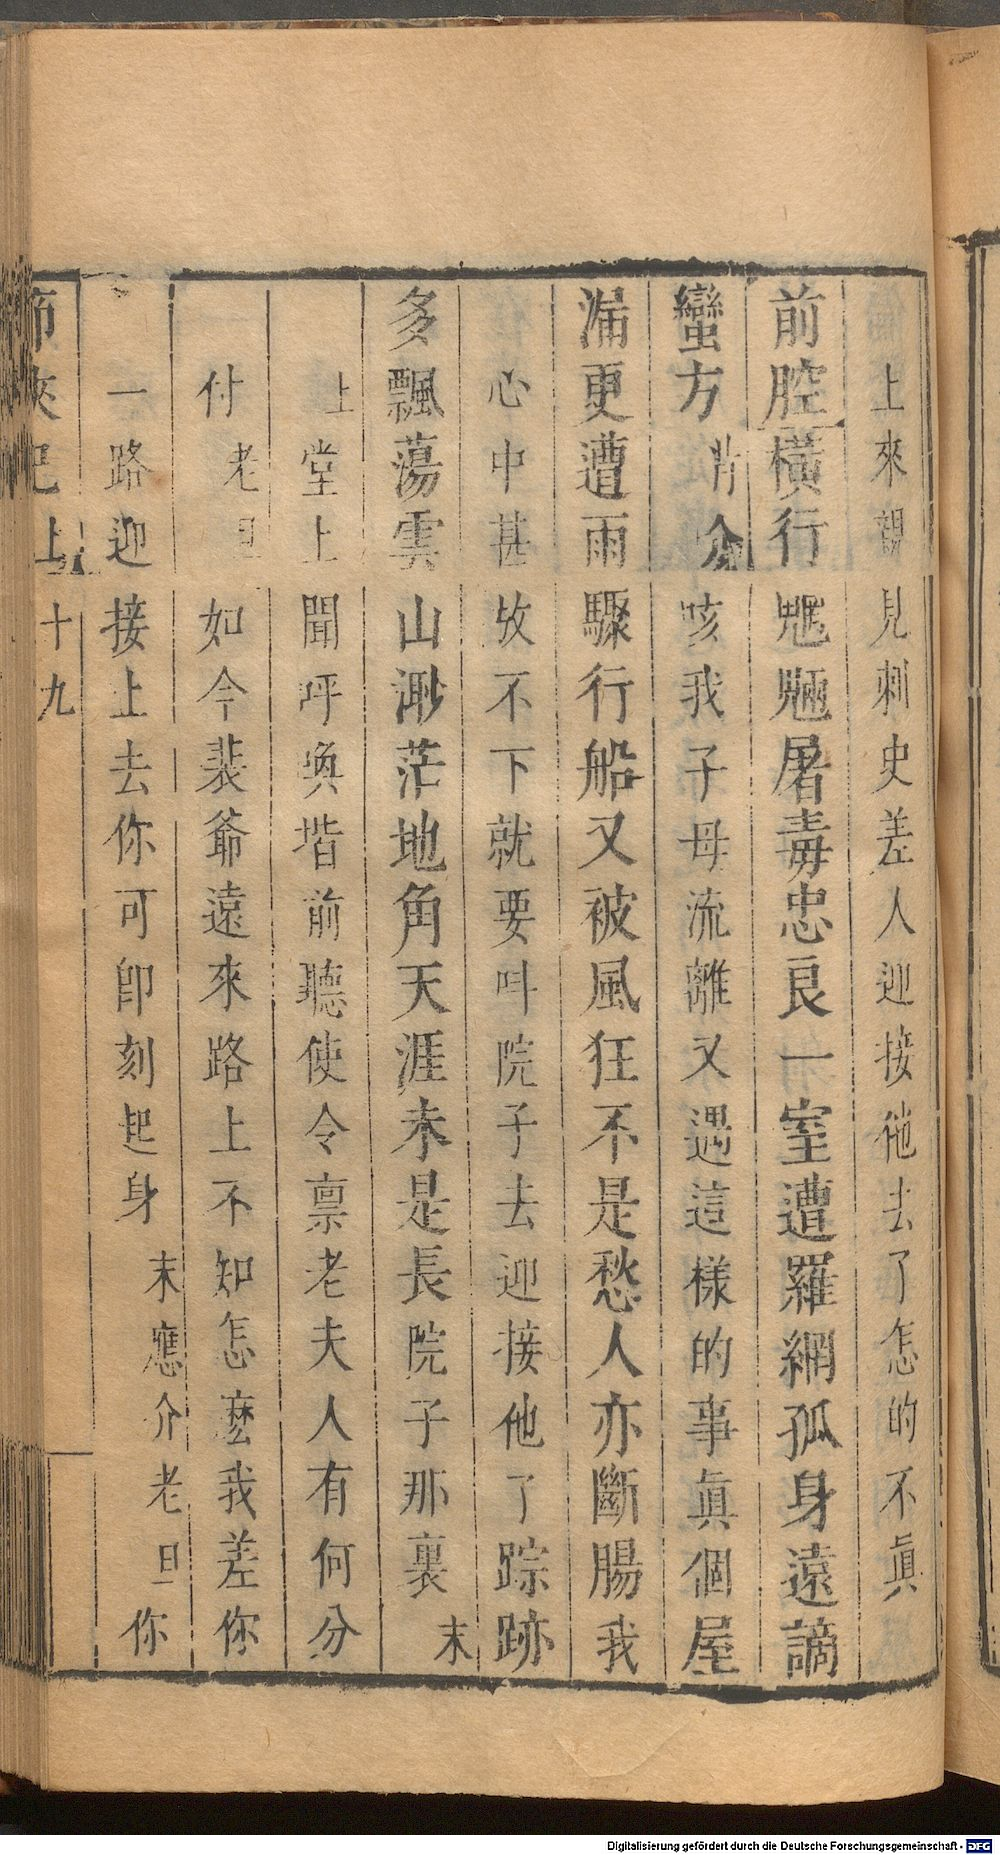 上來說見刺史差人迎接他去了怎的不眞
前腔橫行魍魎屠毒忠良一室遭羅網孤身遠謫
蠻方背介咳我子母流離又遇這樣的事眞個屋
漏更遭雨驟行船又被風狂不是愁人亦斷腸我
心中甚放不下就要呌院子去迎接他了踪跡
多飄蕩雲山渺茫地角天涯未是長院子那裏末
上堂上聞呼喚堦前聽使令禀老夫人有何分
付老旦如今裴爺遠來路上不知怎麽我差你
一路迎接上去你可卽刻起身末應介老旦你
上十九
Digitalisierung gefördert durch die Deutsche Forschungsgemeinschaft - DFG